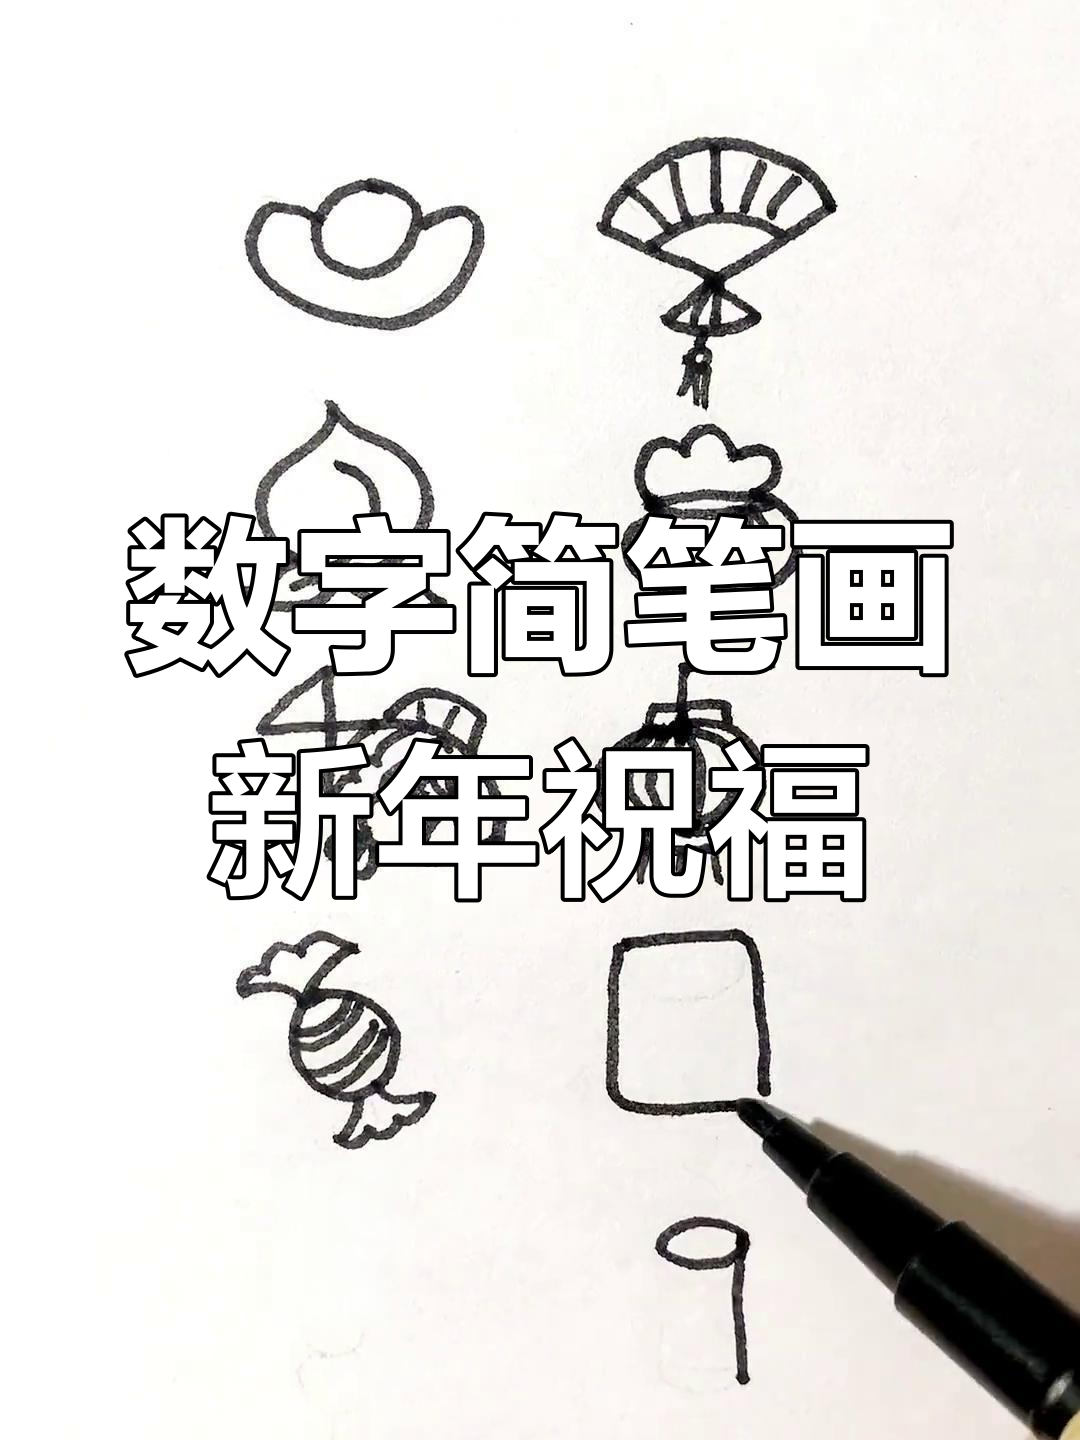 数字简笔画
新年祝福
9